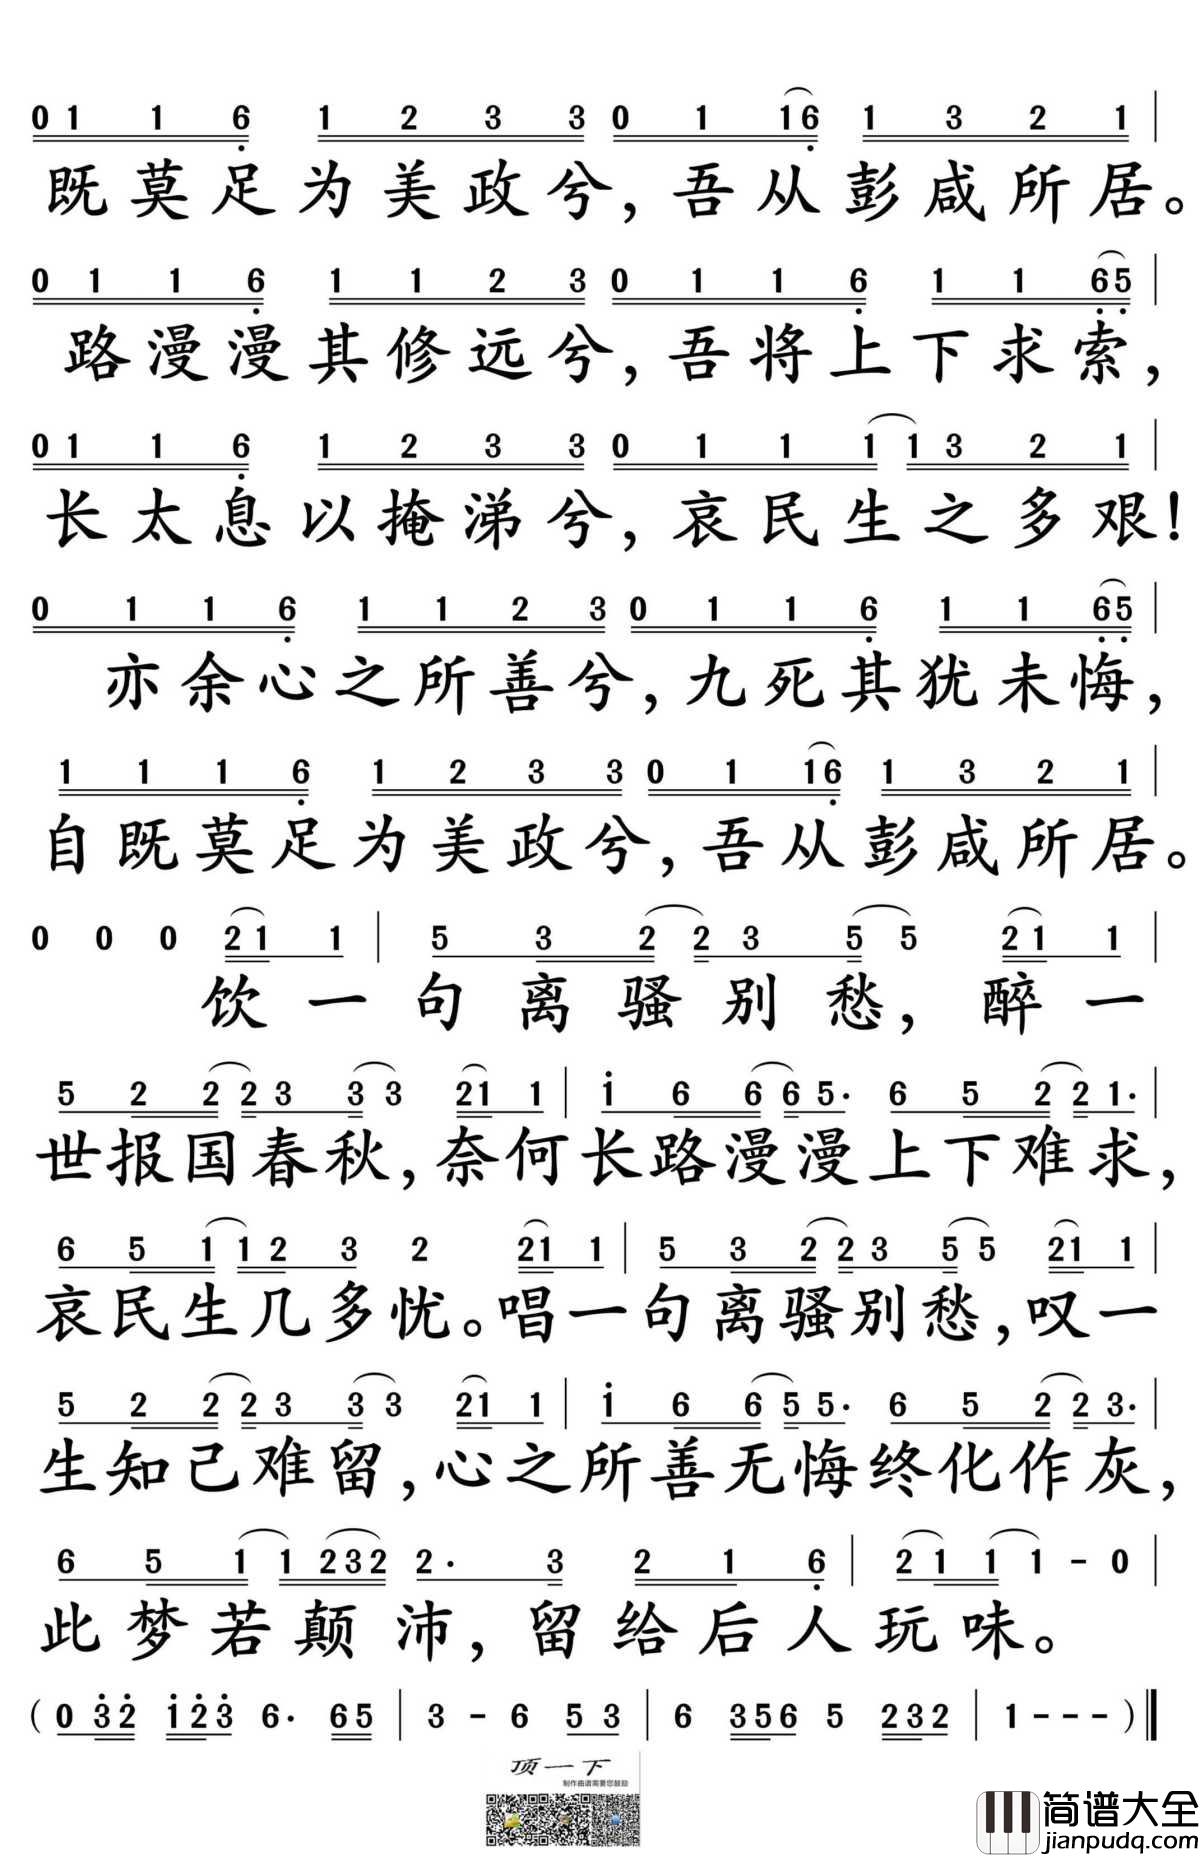 0 1 1 6 1 2 3 3 0 1 1 6 1 3 2 1
既莫足为美政兮，吾从彭咸所居。
0 1 1 6 1 1 2 3 0 1 1 6 1 1 6 5
路漫漫其修远兮，吾将上下求索，
0 1 1 6 1 2 3 3 0 1 1 1 1 3 2 1
长太息以掩涕兮，哀民生之多艰！
0 1 1 6 1 1 2 3 0 1 1 6 1 1 6 5
亦余心之所善兮，九死其犹未悔，
1 1 1 6 1 2 3 3 0 1 1 6 1 3 2 1
自既莫足为美政兮，吾从彭咸所居。
0 0 0 2 1 1 | 5 3 2 2 3 5 5 2 1 1
饮一句离骚别愁，醉一
5 2 2 2 3 3 3 2 1 1 | 1 6 6 6 5. 6 5 2 2 1.
世报国春秋，奈何长路漫漫上下难求，
6 5 1 1 2 3 2 2 1 1 | 5 3 2 2 3 5 5 2 1 1
哀民生几多忧。唱一句离骚别愁，叹一
5 2 2 2 3 3 3 2 1 1 | 1 6 6 5 5. 6 5 2 2 3.
生知己难留，心之所善无悔终化作灰，
6 5 1 1 2 3 2 2. 3 2 1 6 | 2 1 1 1 - 0
此梦若颠沛，留给后人玩味。
(0 3 2 1 2 3 6. 6 5 | 3 - 6 5 3 | 6 3 5 6 5 2 3 2 | 1 - - -)
顶一下
制作曲谱需要您鼓励
简谱大全
jianpudq.com